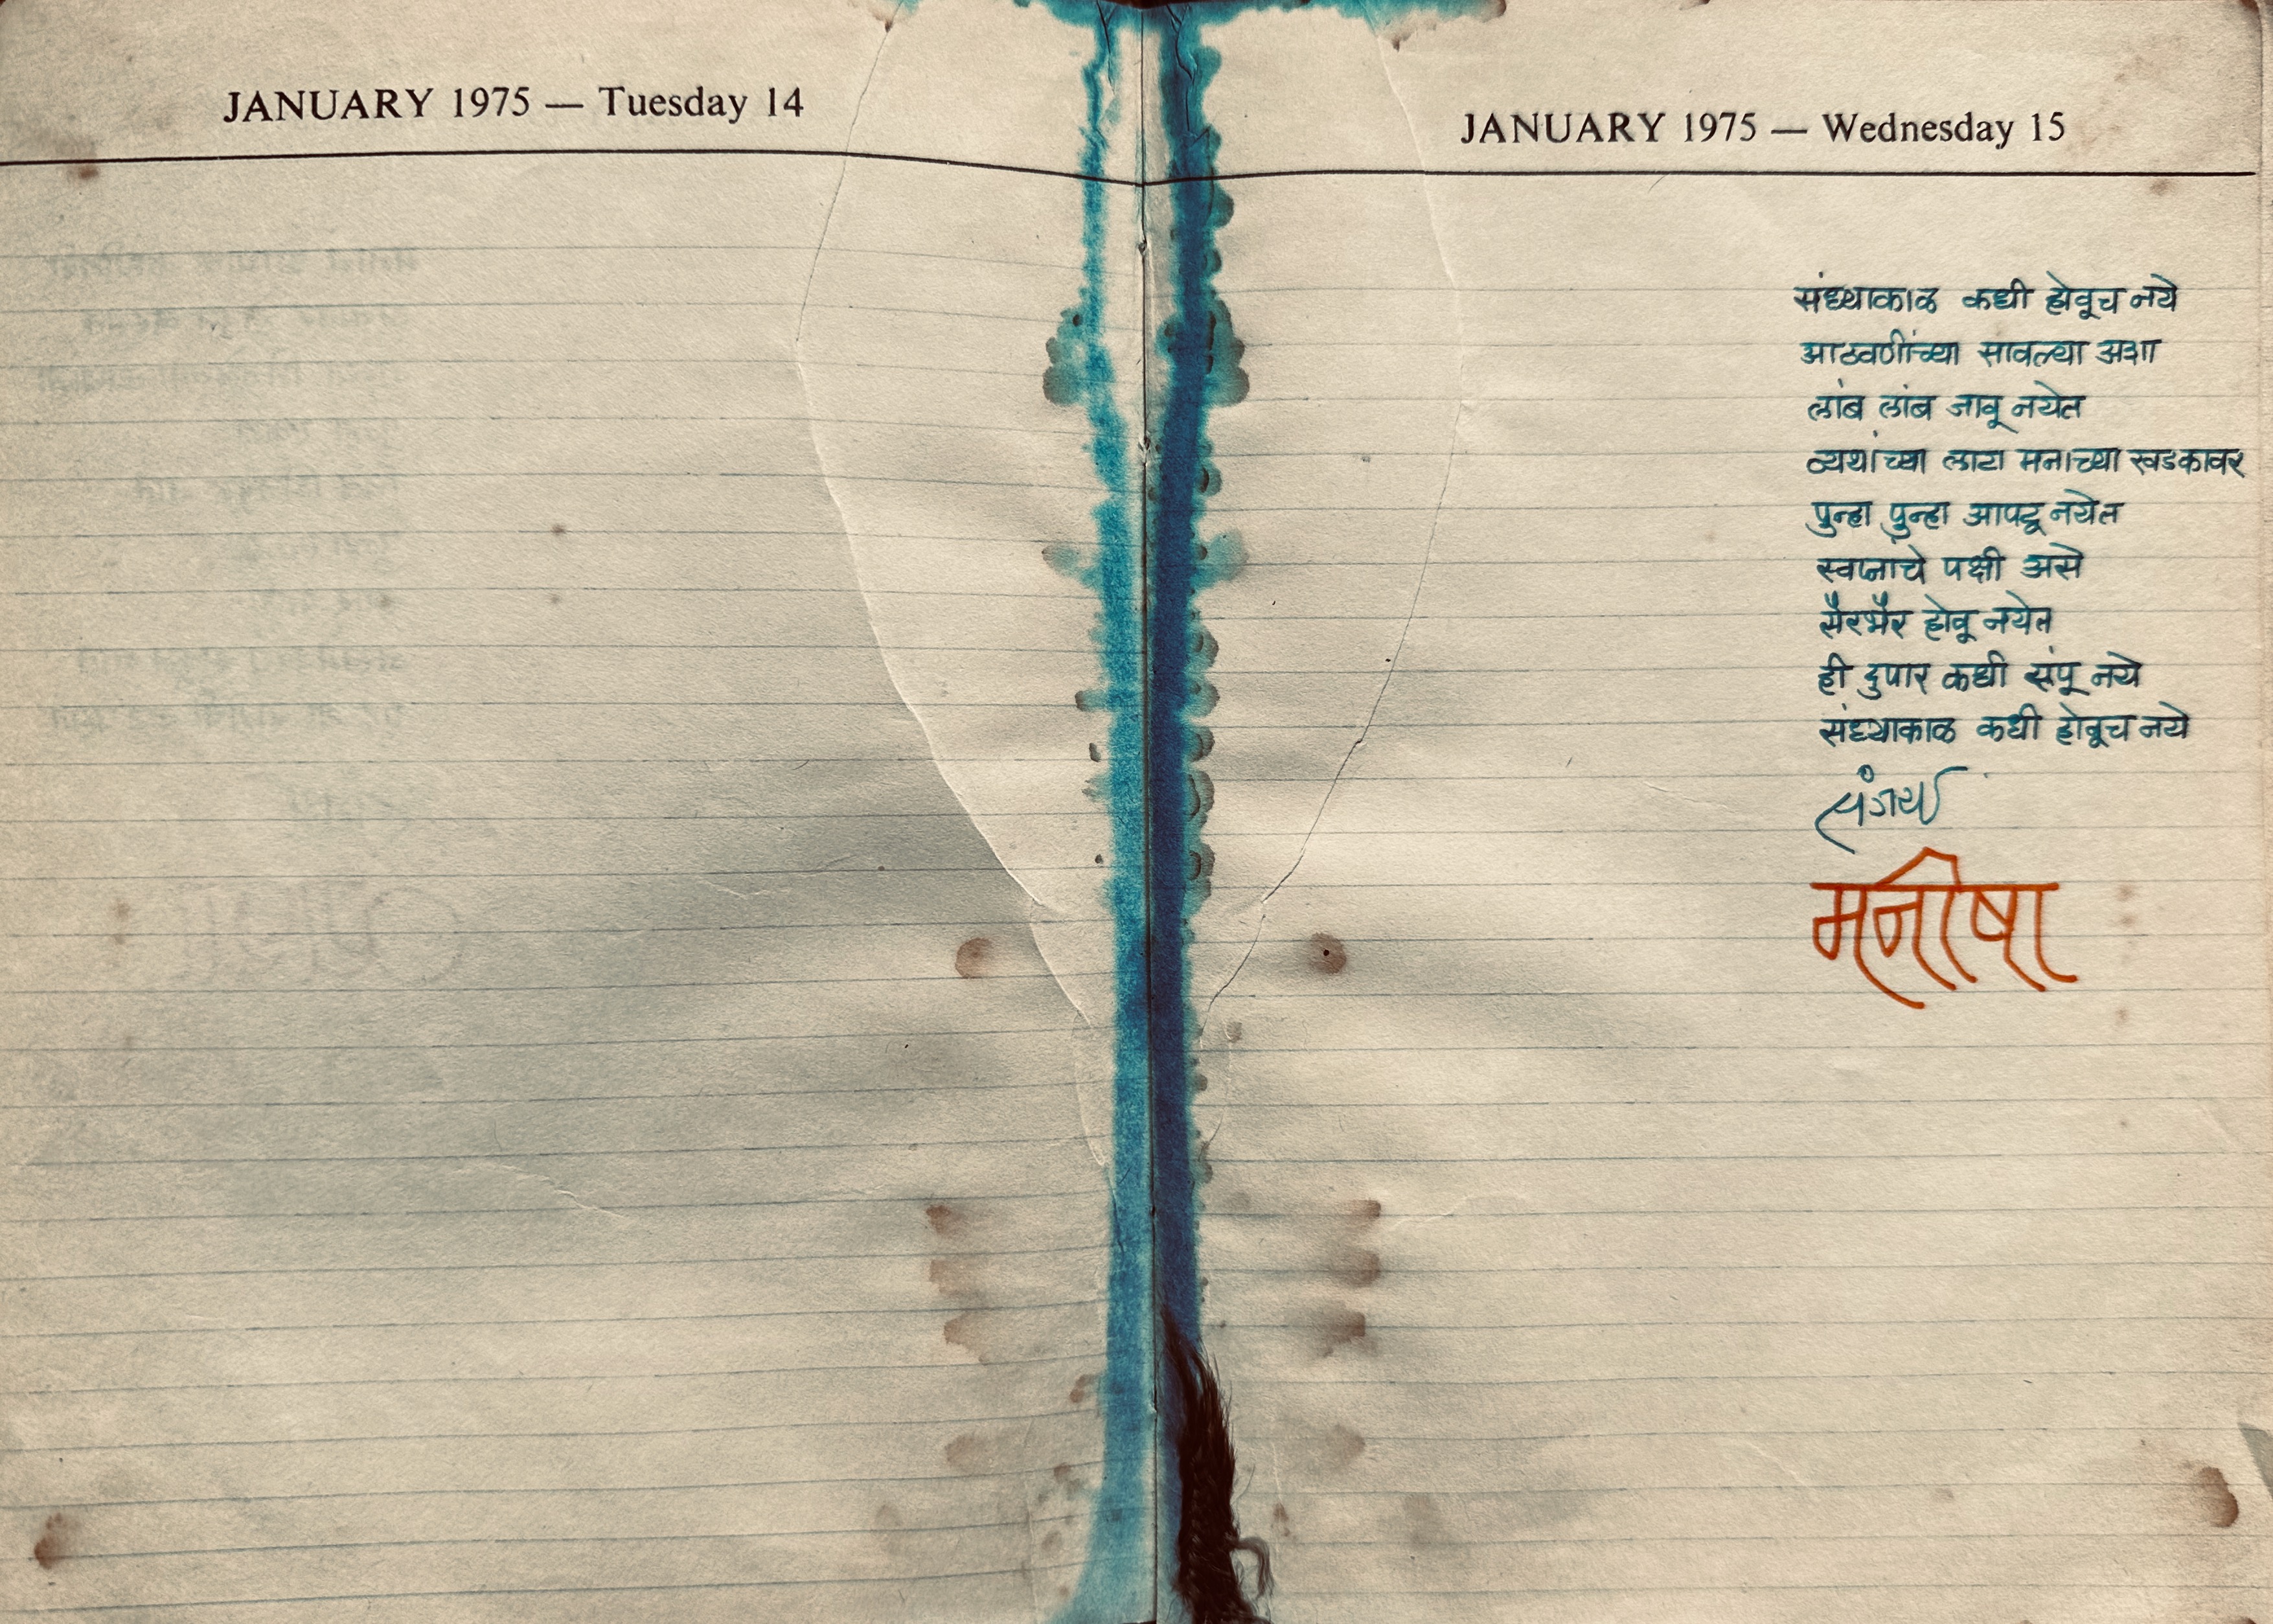 JANUARY 1975 — Tuesday 14
JANUARY 1975 — Wednesday 15
संध्याकाळ कधी होवूच नये
आठवणींच्या सावल्या अशा
लांब लांब जावू नयेत
व्यथांच्या लाटा मनाच्या खडकावर
पुन्हा पुन्हा आपटू नयेत
स्वप्नाचे पक्षी असे
सैरभैर होवू नयेत
ही दुपार कधी संपू नये
संध्याकाळ कधी होवूच नये
संजय
मनीषा